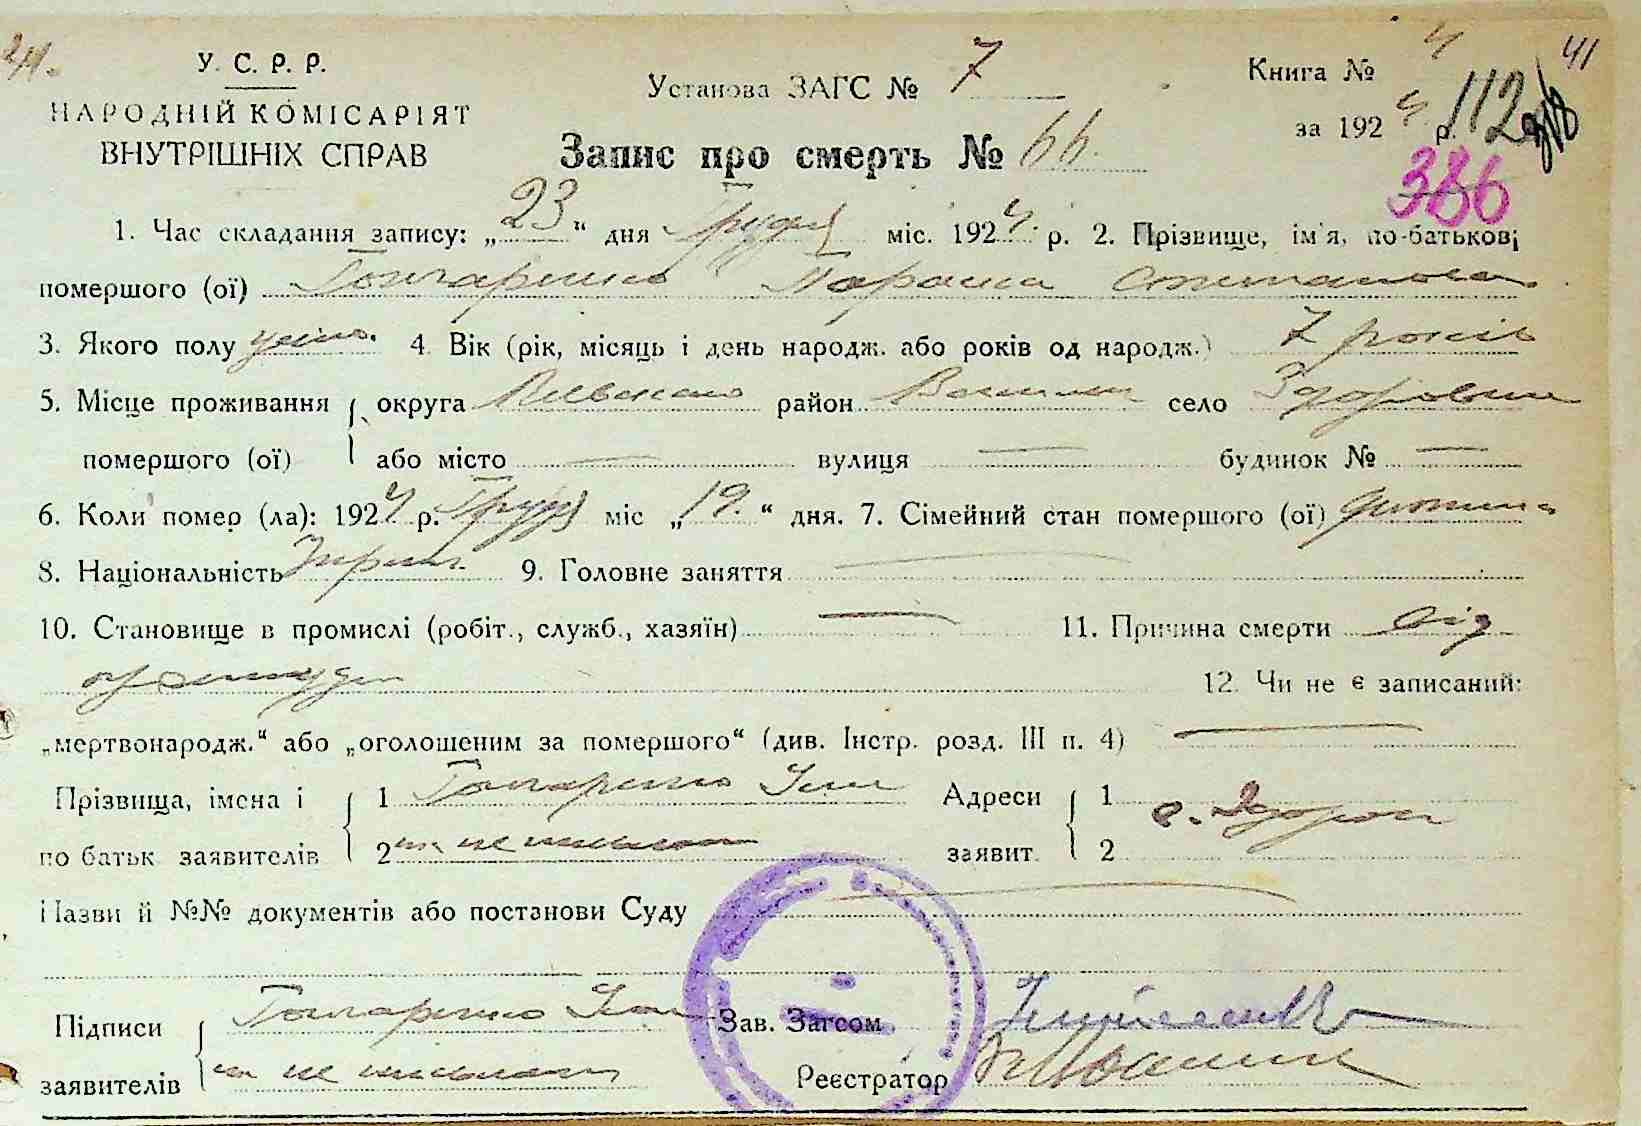 24.
41
У. С. Р. Р.
НАРОДНІЙ КОМІСАРІЯТ
ВНУТРІШНІХ СПРАВ
Установа ЗАГС № 7
Книга № 4
за 1924 р.
112
386
Запис про смерть № 66
1. Час складання запису: „23“ дня Грудня міс. 1924 р. 2. Прізвище, ім'я, по-батькові
помершого (ої) Гончаренко Параска Степановна
3. Якого полу жіно. 4. Вік (рік, місяць і день народж. або років од народж.) 7 років
5. Місце проживання округа район село
помершого (ої) або місто — вулиця — будинок № —
6. Коли помер (ла): 1924 р. Грудн міс „19“ дня. 7. Сімейний стан помершого (ої) дитина
8. Національність Україн. 9. Головне заняття —
10. Становище в промислі (робіт., служб., хазяїн) — 11. Причина смерти Від
простуди
12. Чи не є записаний:
„мертвонародж.“ або „оголошеним за помершого“ (див. Інстр. розд. III п. 4) —
Прізвища, імена і 1 Гончаренко Адреси 1 с.
по батьк заявителів 2 заявит. 2
Назви й №№ документів або постанови Суду —
Підписи Гончаренко Зав. Загсом
заявителів Реєстратор